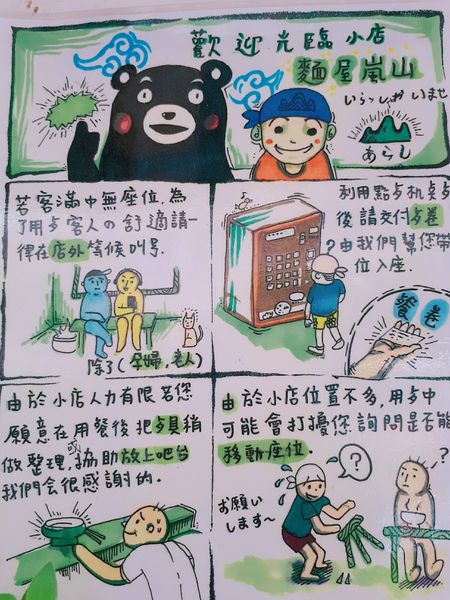 歡迎光臨小店
麵屋嵐山
いらっしゃいませ
あらし
若客滿中無座位，為
了用歺客人の舒適請一
律在店外等候叫号.
除了(孕婦,老人)
利用點歺机点歺
後請交付歺卷
?由我們幫您帶
位入座.
餐卷
由於小店人力有限若您
願意在用餐後把歺具稍
做整理,或協助放上吧台
我們会很感謝的.
由於小店位置不多,用歺中
可能會打擾您詢問是否能
移動座位.
?
?
お願い
します~